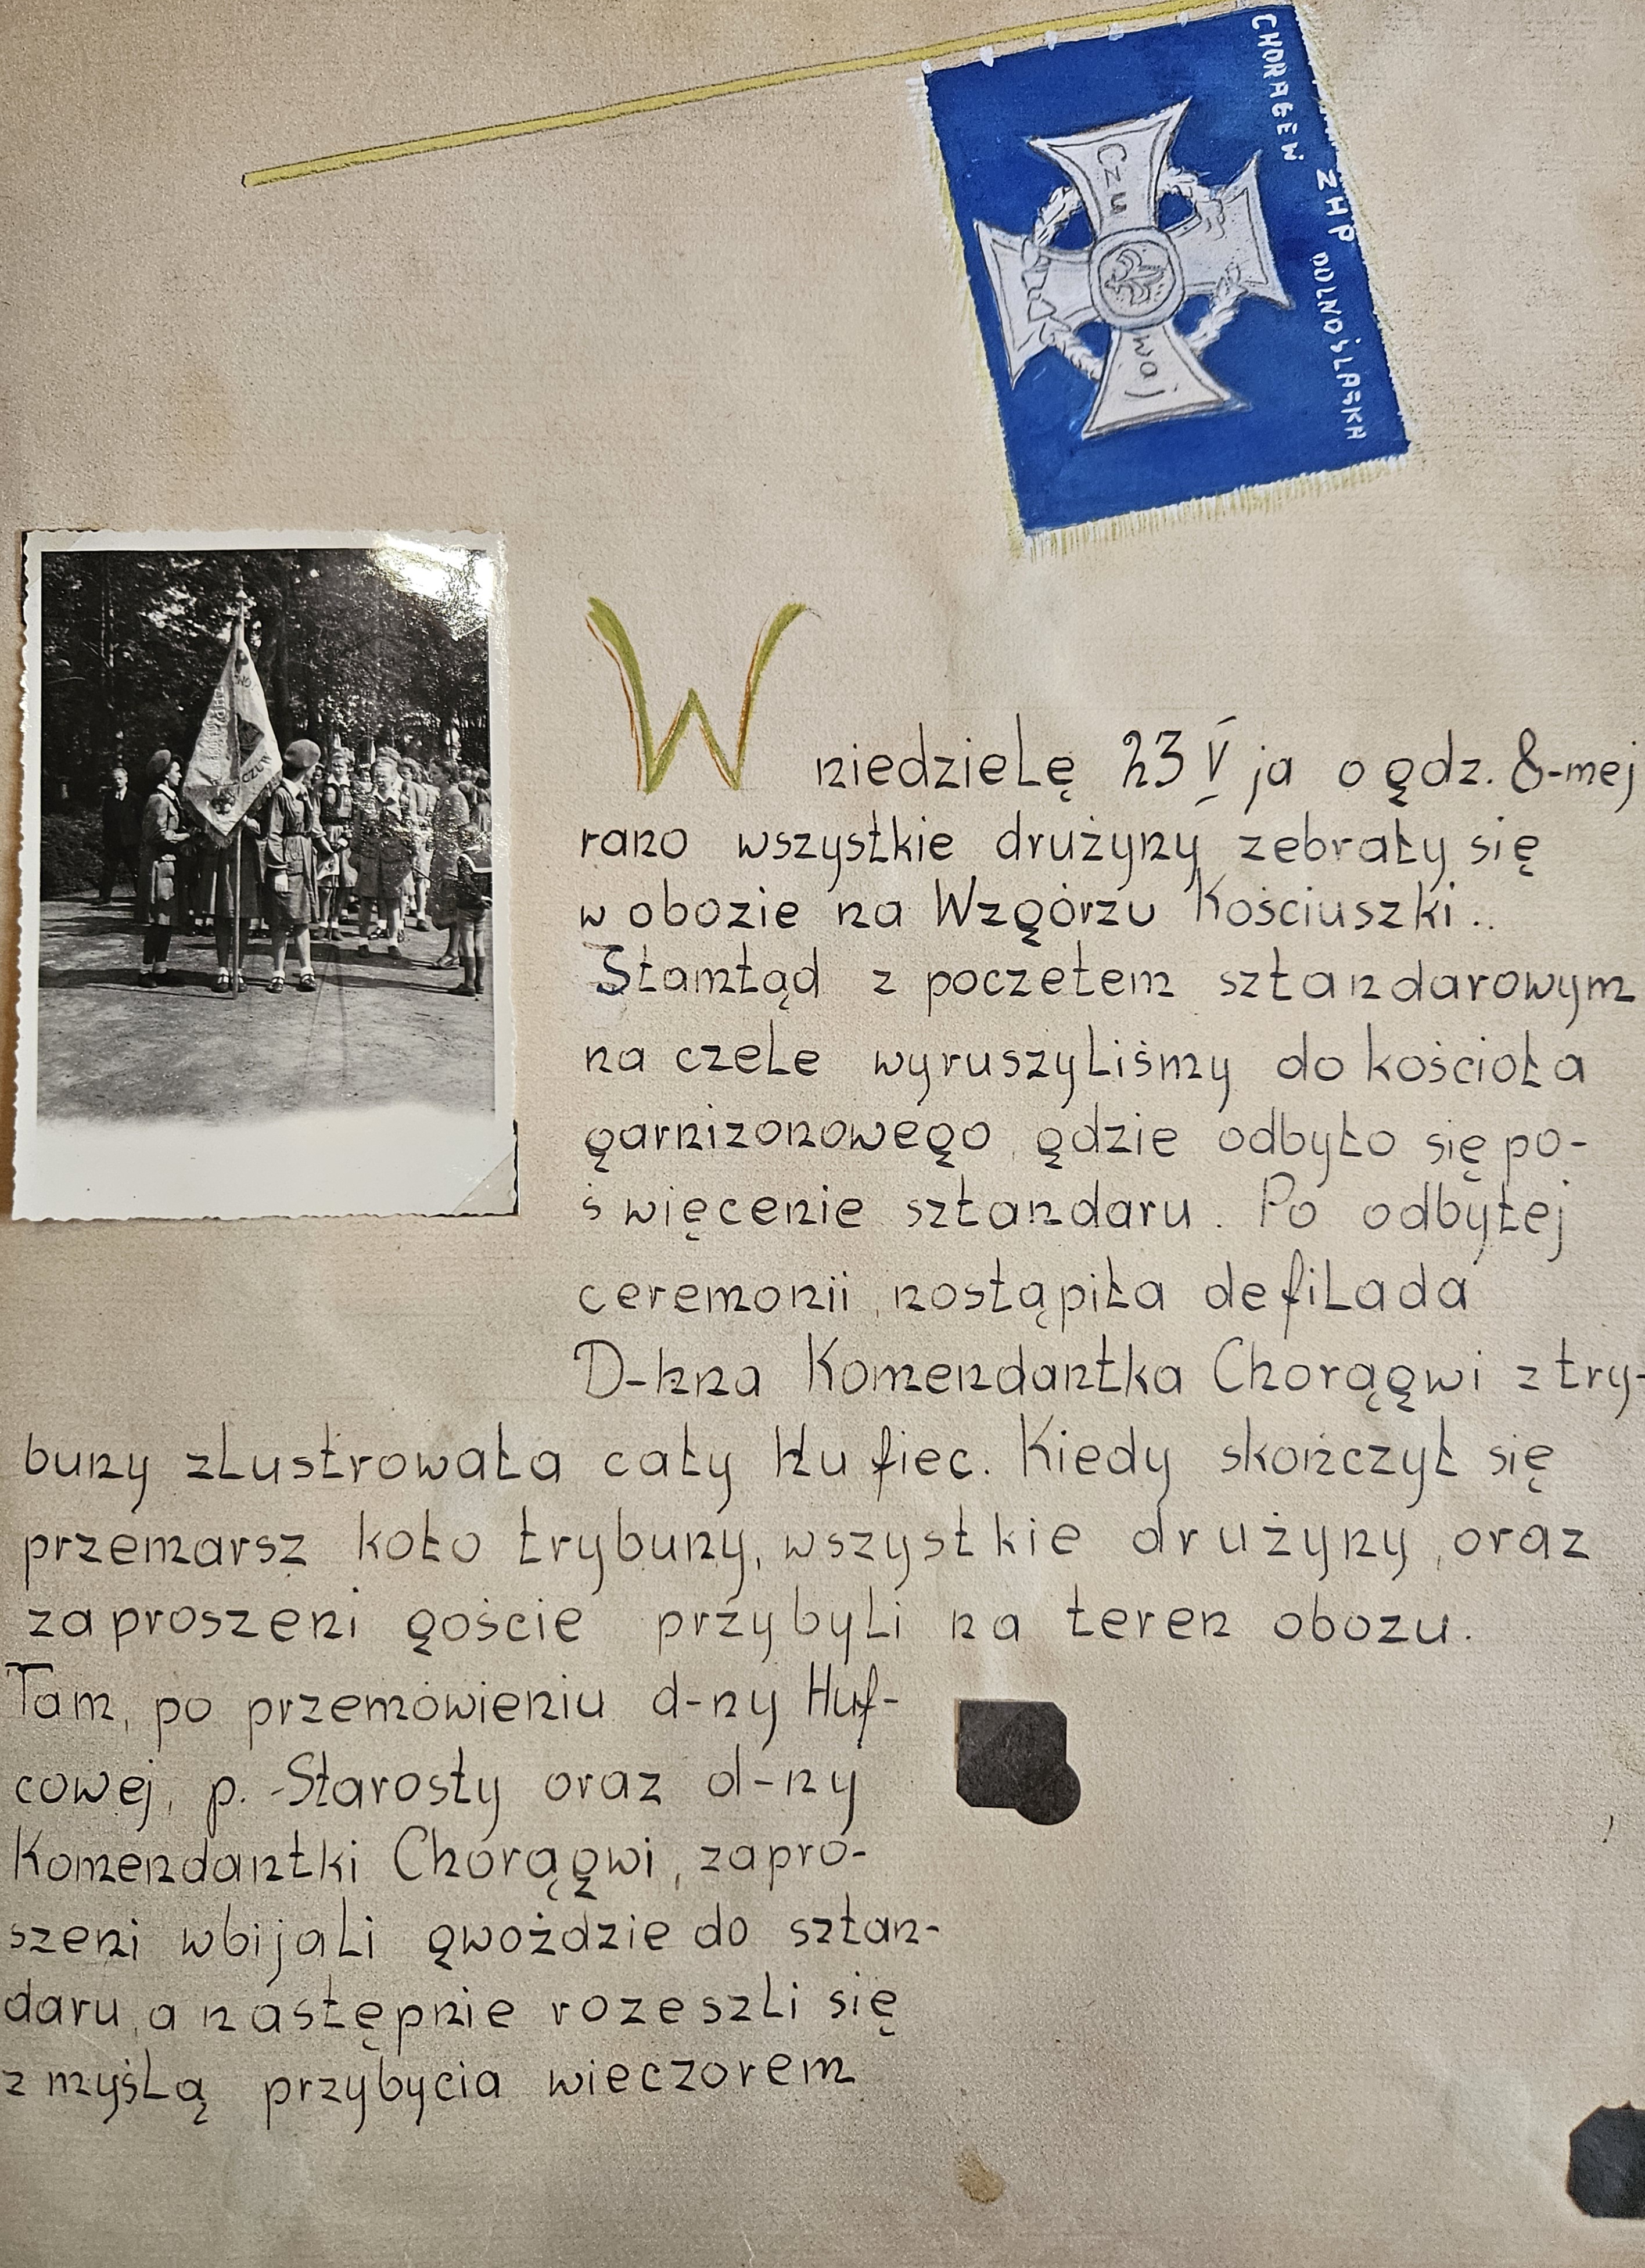 CHORĄGEW ZHP DOLNOŚLĄSKA
Czu
waj
CZUW
W niedzielę 23 V ja o gdz. 8-mej
rano wszystkie drużyny zebrały się
w obozie na Wzgórzu Kościuszki..
Stamtąd z pocztem sztandarowym
na czele wyruszyliśmy do kościoła
garnizonowego, gdzie odbyło się po-
święcenie sztandaru. Po odbytej
ceremonii, nostąpiła defilada
D-hna Komendantka Chorągwi z try-
buny zlustrowała cały Hufiec. Kiedy skończył się
przemarsz koło trybuny, wszystkie drużyny, oraz
zaproszeni goście przybyli na teren obozu.
Tam, po przemówieniu d-ny Huf-
cowej, p. Starosty oraz d-ny
Komendantki Chorągwi, zapro-
szeni wbijali gwoździe do sztan-
daru, a następnie rozeszli się
z myślą przybycia wieczorem